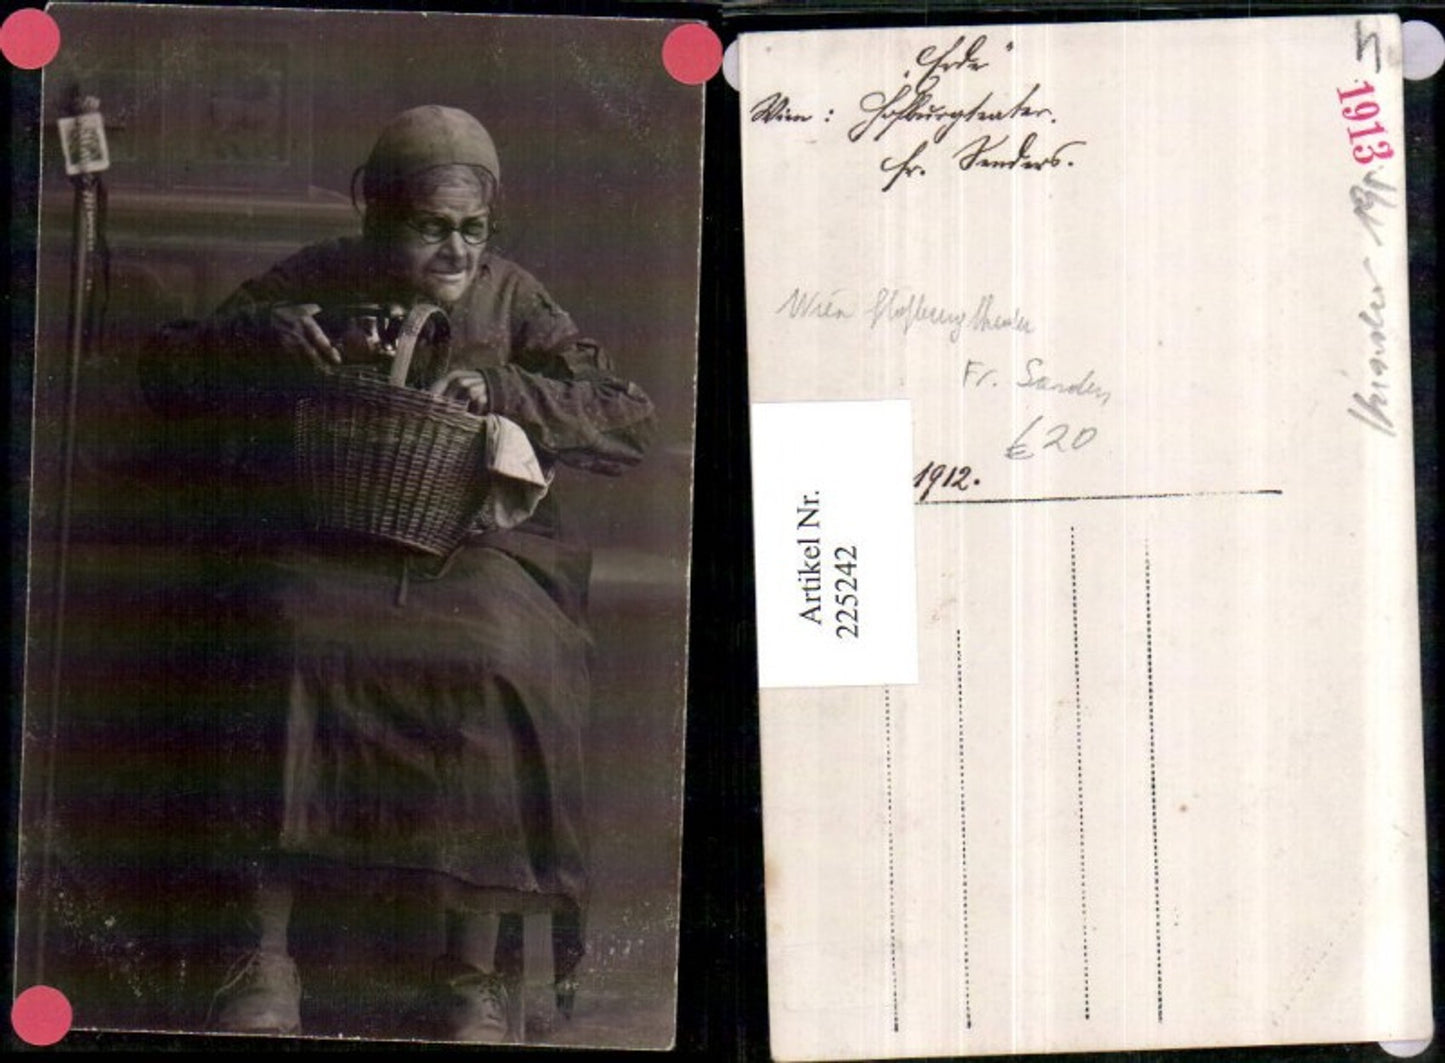 „Erde"
Wien: Hofburgteater.
Fr. Senders.
Wien Hofburgtheater
Fr. Sanders
€20
1912.
Artikel Nr.
225242
5
1913